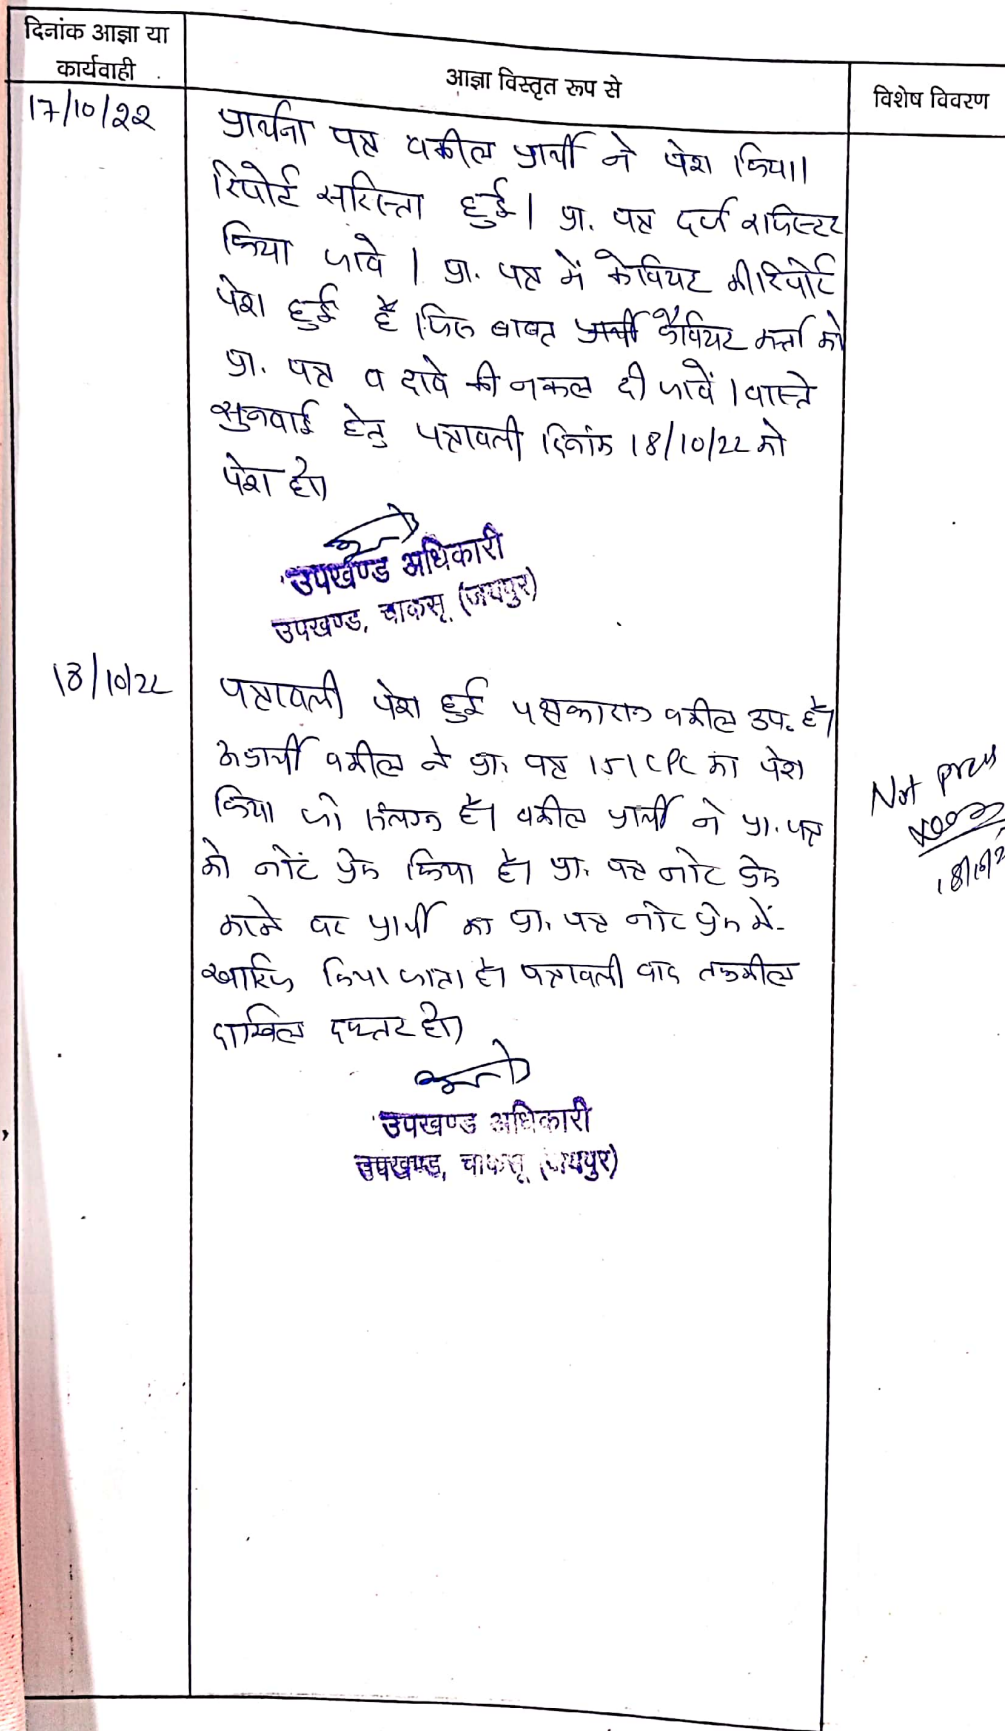 दिनांक आज्ञा या
कार्यवाही
आज्ञा विस्तृत रूप से
विशेष विवरण
17/10/22
प्रार्थना पत्र वकील प्रार्थी ने पेश किया।
रिपोर्ट सरिस्ता हुई। प्रा. पत्र दर्ज रजिस्टर
किया जावे। प्रा. पत्र में केवियट की रिपोर्ट
पेश हुई है। जिस बाबत प्रार्थी कैवियट कर्ता को
प्रा. पत्र व दावे की नकल दी जावें। वास्ते
सुनवाई हेतु पत्रावली दिनांक 18/10/22 को
पेश हो।
उपखण्ड अधिकारी
उपखण्ड, चाकसू (जयपुर)
18/10/22
पत्रावली पेश हुई पक्षकारान वकील उप. है।
अप्रार्थी वकील ने प्रा. पत्र 151 CPC का पेश
किया जो संलग्न है। वकील प्रार्थी ने प्रा. पत्र
को नोट प्रेस किया है। प्रा. पत्र नोट प्रेस
करने पर प्रार्थी का प्रा. पत्र नोट प्रेस में
खारिज किया जाता है। पत्रावली बाद तकमील
दाखिल दफ्तर हो।
Not press
18/10/2
उपखण्ड अधिकारी
उपखण्ड, चाकसू (जयपुर)